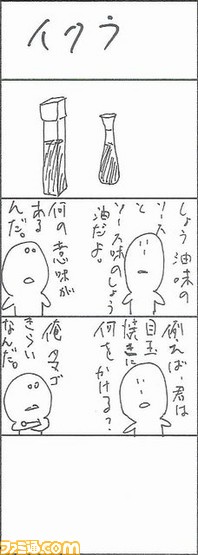 イクラ
しょう油味の
ソース
と
ソース味のしょう
油だよ。
何の意味が
ある
んだ。
例えば、君は
目玉
焼きに
何をかける?
俺、タマゴ
きらい
なんだ。
ファミ通.com